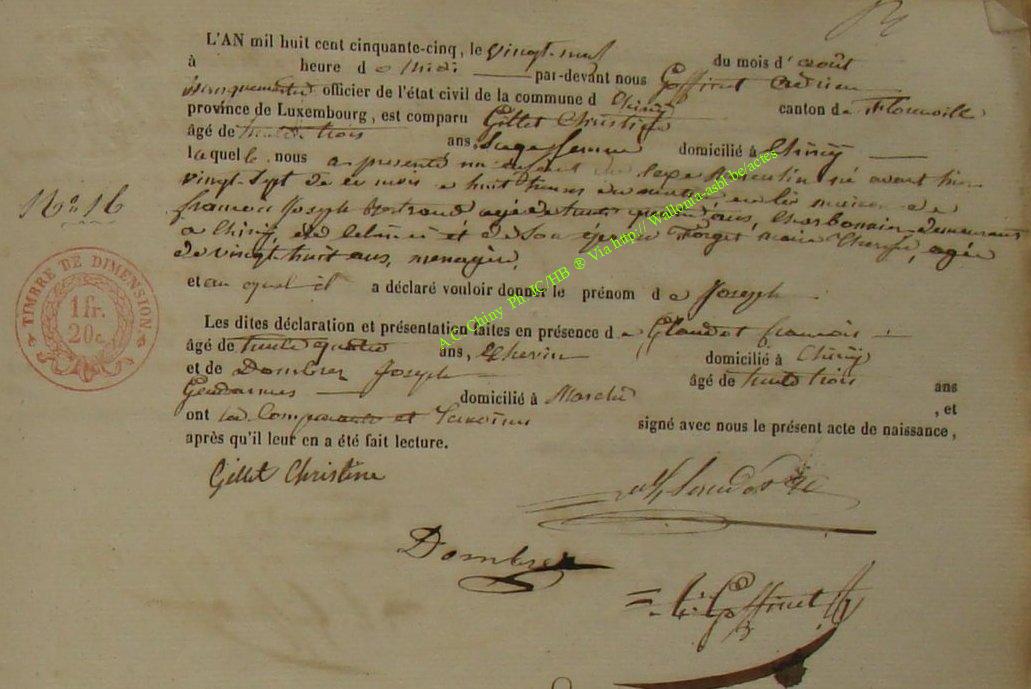 L'AN mil huit cent cinquante-cinq, le vingt-neuf du mois d'août
à heure de midi par-devant nous Goffinet Adrien
Bourguemestre officier de l'état civil de la commune d Chiny canton de Florenville
province de Luxembourg, est comparu Gillet Christine
âgé de trente trois ans, Sage femme domicilié à Chiny
laquelle nous a présenté un enfant du sexe masculin né avant hier
vingt Sept de ce mois a huit heures du matin, en la maison de
françois Joseph Bertrand agé de trente ans, Charbonnier demeurant
N° 16
a Chiny, et de Son épouse Forget marie Therese, agée
de vingt huit ans, menagère,
et au quel il a déclaré vouloir donner le prénom de Joseph
TIMBRE DE DIMENSION
1 fr.
20 c.
Les dites déclaration et présentation faites en présence de Glaudot françois
âgé de trente quatre ans, Echevin domicilié à Chiny
et de Dombret Joseph âgé de trente trois ans
Gendarmes domicilié à
ont la Comparante et temoins , et
signé avec nous le présent acte de naissance,
après qu'il leur en a été fait lecture.
Gillet Christine
Dombret
Goffinet
A.C. Chiny Ph. JC/HB ® Via http://Wallonia-asbl.be/actes